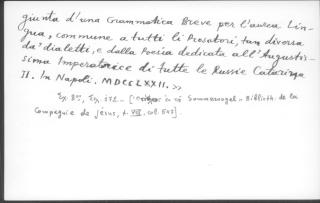 giunta d'una Grammatica Breve per l'aurea Lin-
gua, commune a tutti li Prosatori, tan diversa
da' dialetti, e dalla Poesia dedicata all'Augustis-
sima Imperatrice di tutte le Russie Catarina
II. In Napoli. MDCCLXXII. >>
in Sommervogel - Biblioth. de la
Compagnie de Jésus, t. VIII. col.